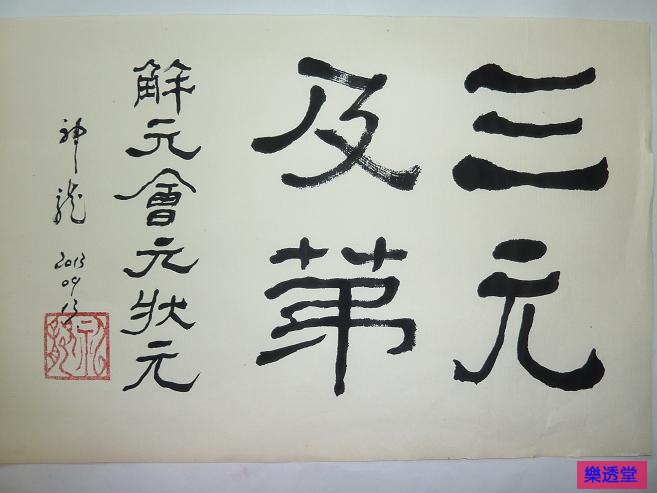 三元
及第
解元會元狀元
神龍
2013
09
13
樂透堂